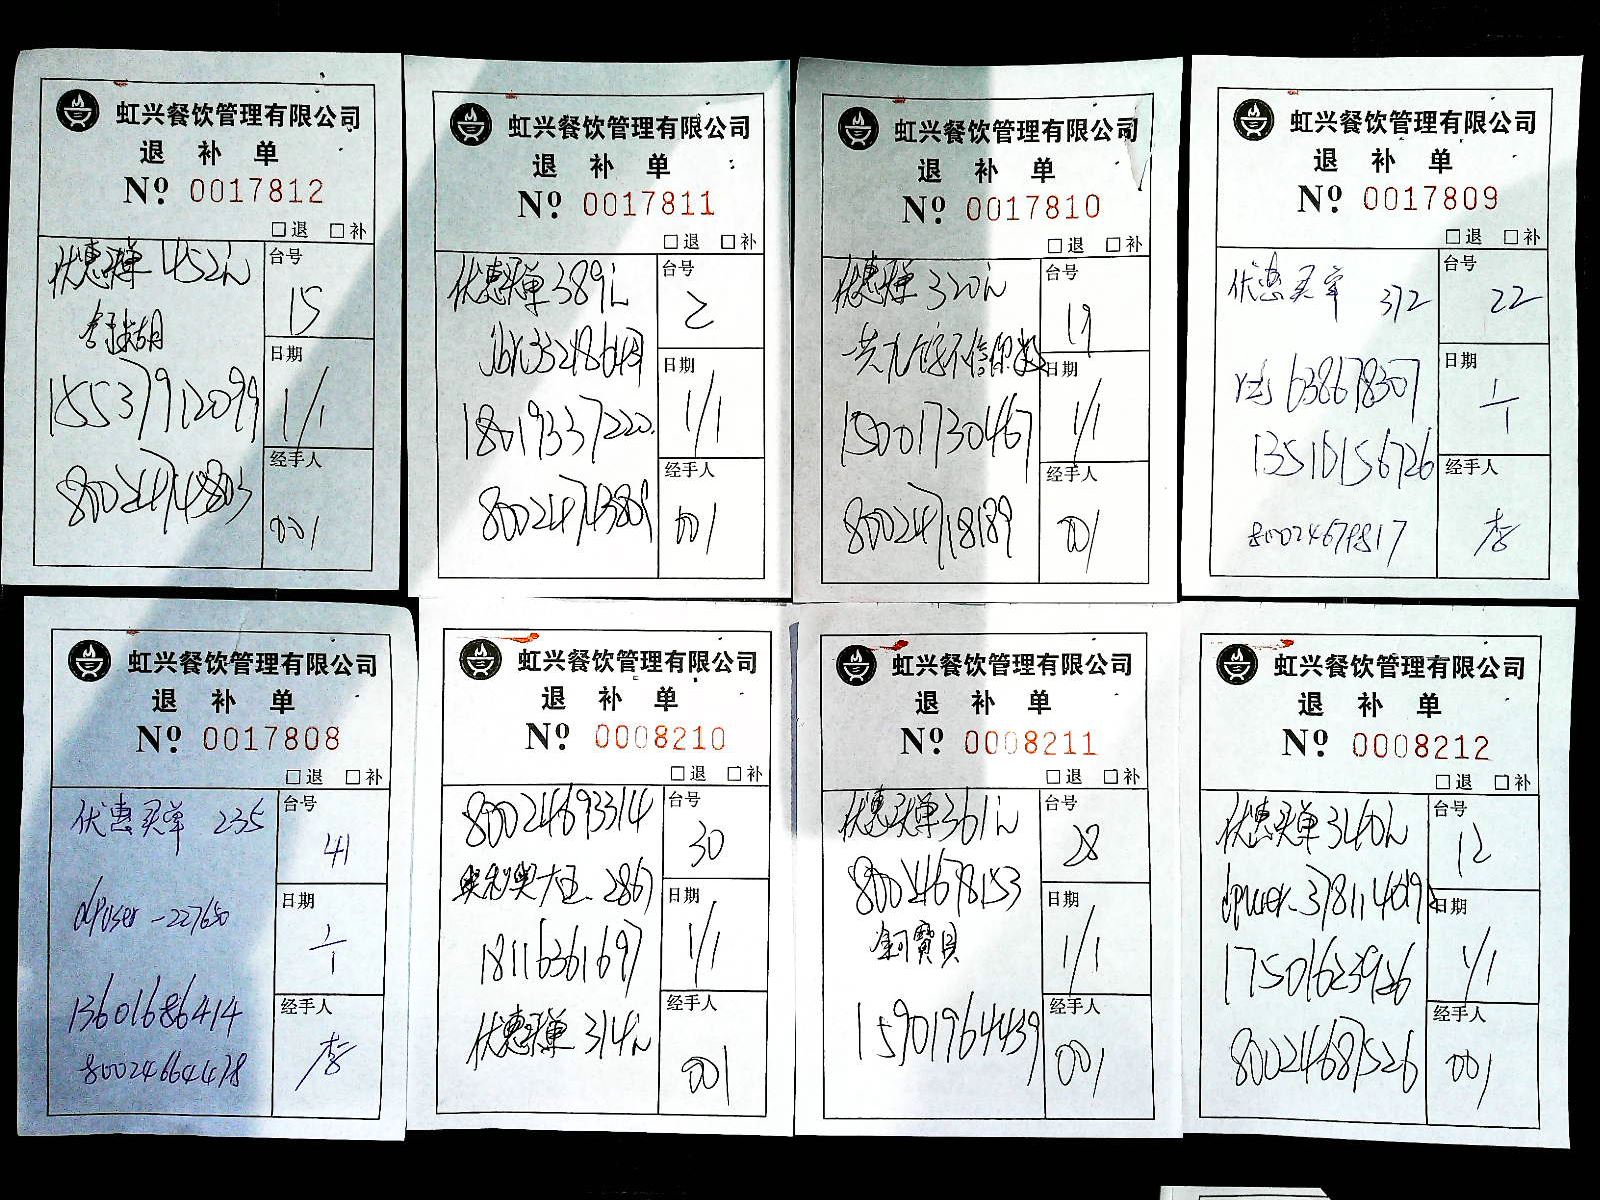 虹兴餐饮管理有限公司
退 补 单
Nº 0017812
□退 □补
优惠买单 452元
15537912099
800247474803
台号
15
日期
1/1
经手人
001
虹兴餐饮管理有限公司
退 补 单
Nº 0017811
□退 □补
优惠买单 389元
18019337220.
800247473809
台号
2
日期
1/1
经手人
001
虹兴餐饮管理有限公司
退 补 单
Nº 0017810
□退 □补
优惠买单 320元
15001730467
800247718189
台号
19
日期
1/1
经手人
001
虹兴餐饮管理有限公司
退 补 单
Nº 0017809
□退 □补
优惠买单 372
638678307
13510156726
台号
22
日期
1/1
经手人
李
虹兴餐饮管理有限公司
退 补 单
Nº 0017808
□退 □补
优惠买单 235
dpuser-227650
13601686414
800246644478
台号
41
日期
1/1
经手人
李
虹兴餐饮管理有限公司
退 补 单
Nº 0008210
□退 □补
80024693314
奥利奥大王-2867
18116361697
优惠买单 314元
台号
30
日期
1/1
经手人
001
虹兴餐饮管理有限公司
退 补 单
Nº 0008211
□退 □补
优惠买单 361元
80024678153
寶貝
15901964439
台号
28
日期
1/1
经手人
001
虹兴餐饮管理有限公司
退 补 单
Nº 0008212
□退 □补
优惠买单 340元
17501623926
800246871526
台号
12
日期
1/1
经手人
001